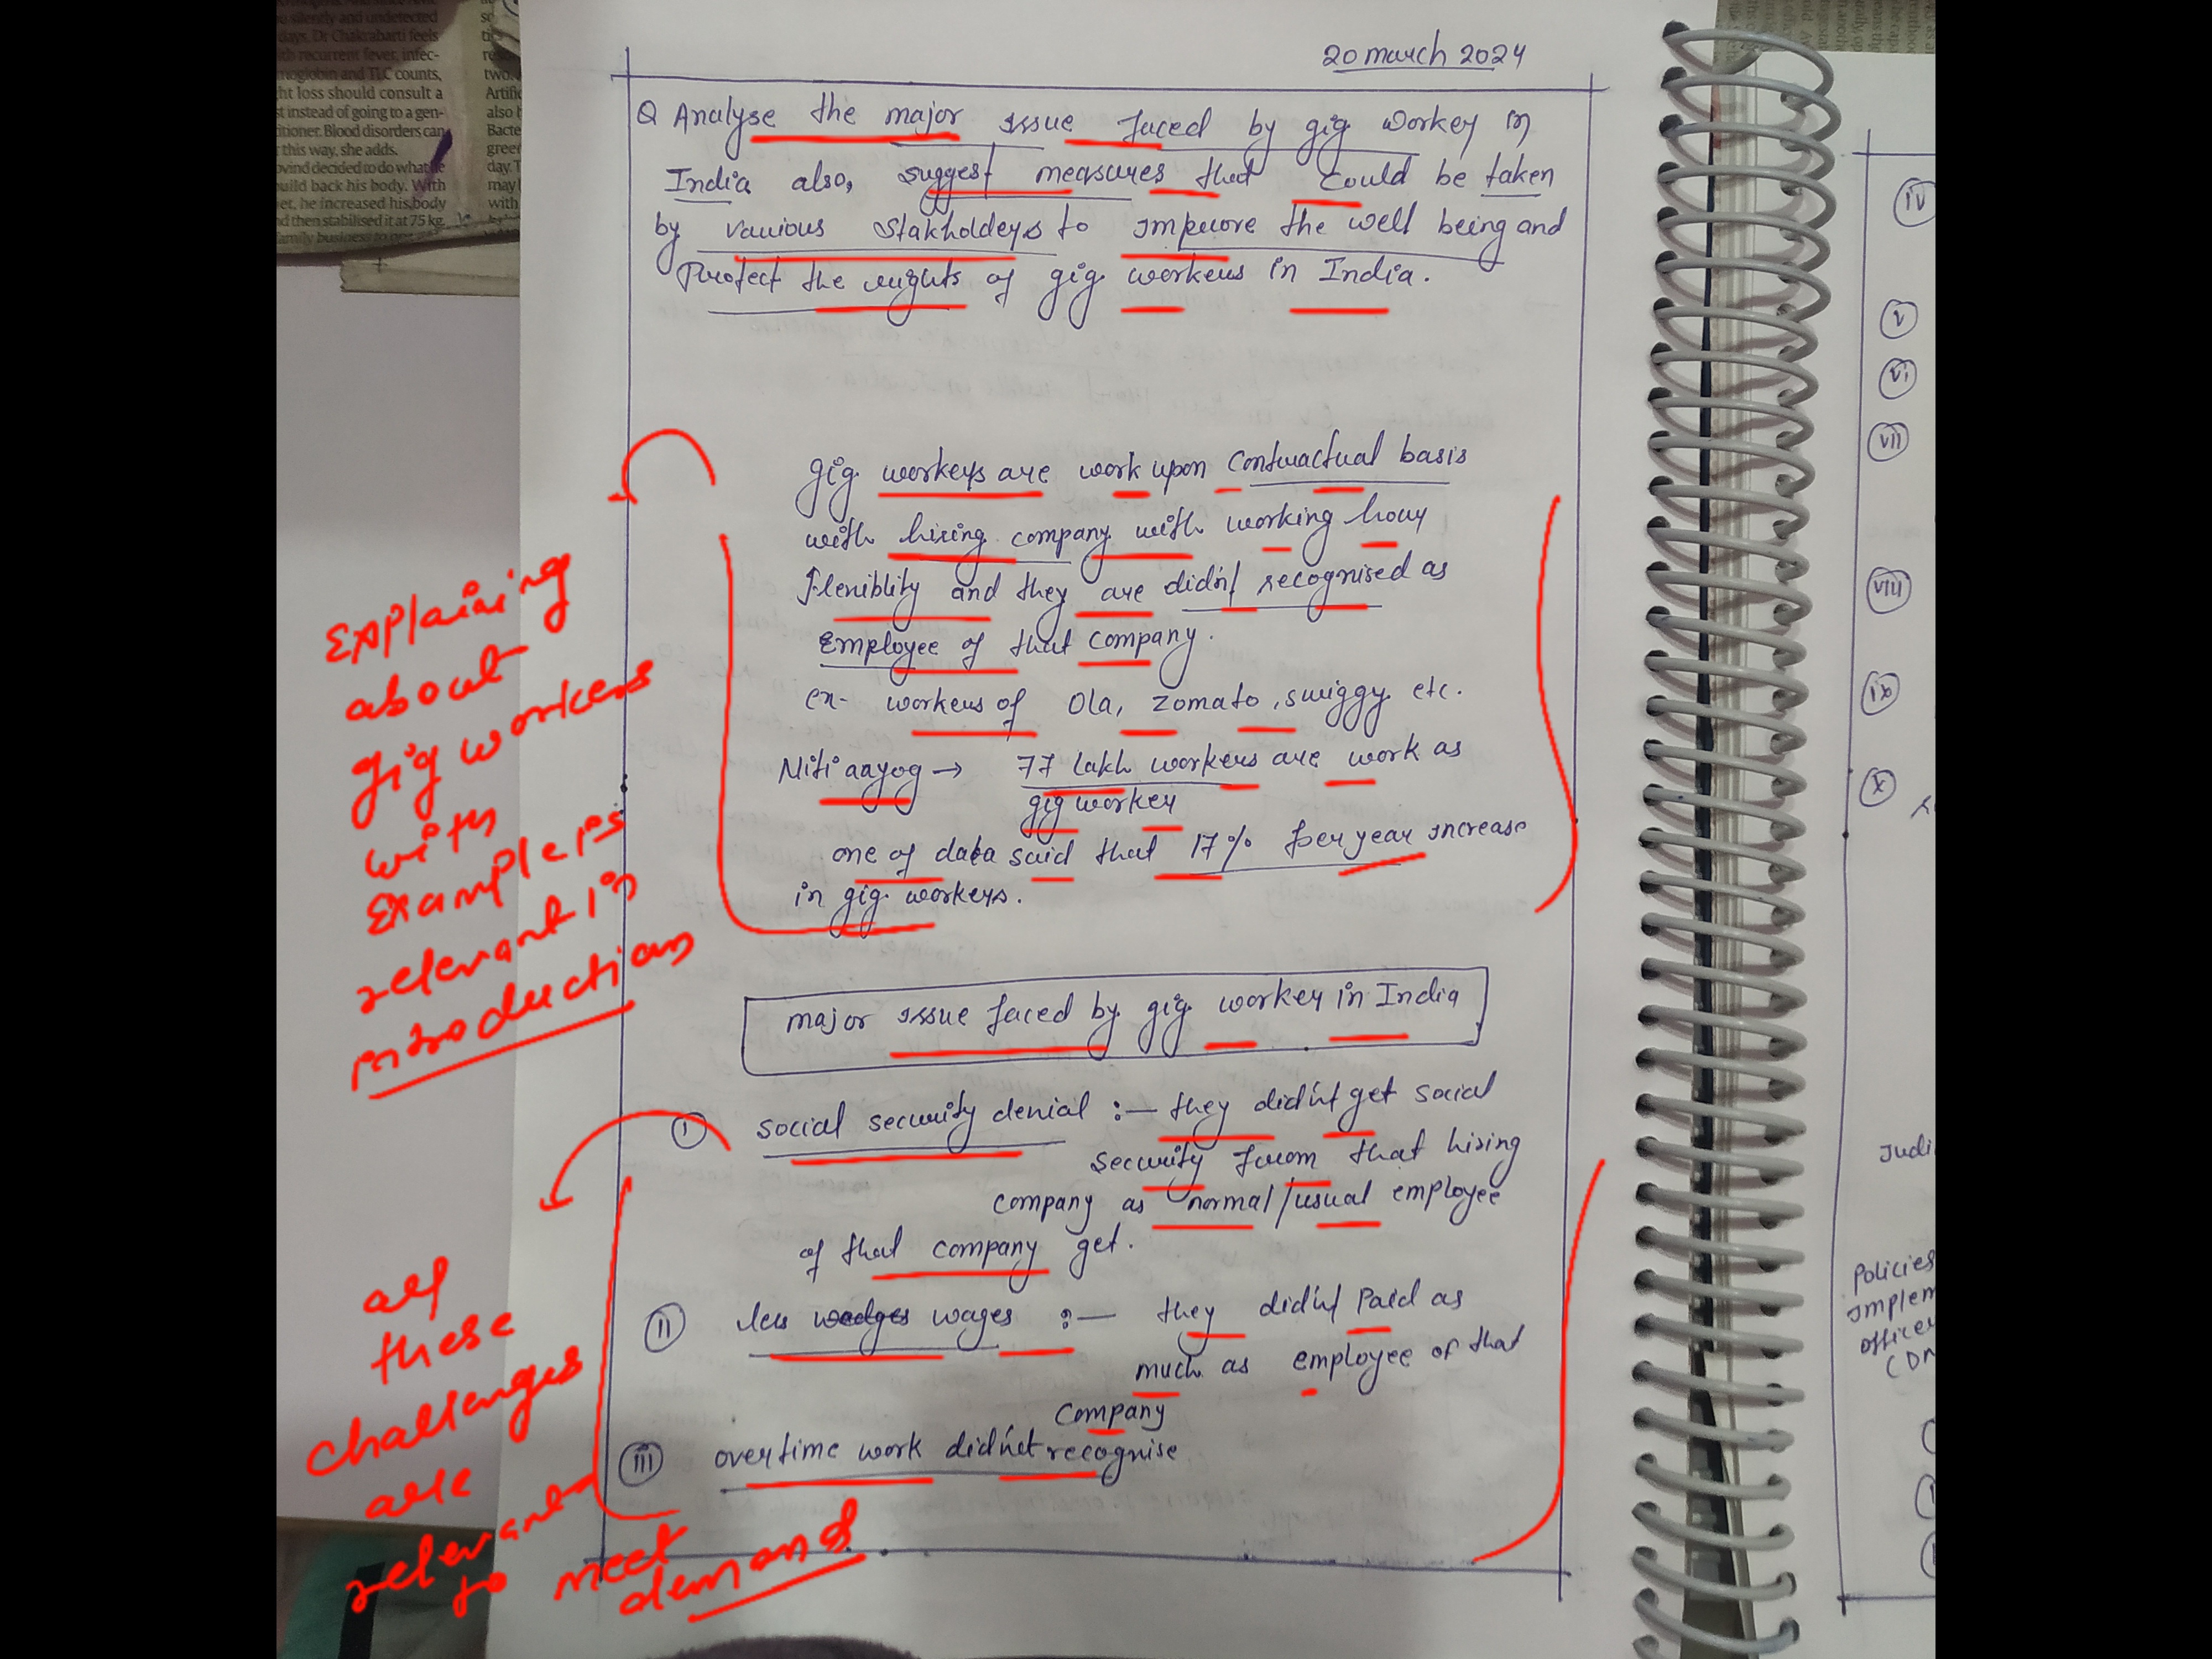 silently and undetected
days. Dr Chakrabarti feels
recurrent fever, infec-
moglobin and TLC counts,
ht loss should consult a
t instead of going to a gen-
itioner. Blood disorders can
this way, she adds.
ovind decided to do what he
uild back his body. With
et, he increased his body
nd then stabilised it at 75 kg.
family business to
two.
Artific
also
Bacte
green
day. T
may
with
20 march 2024
Q Analyse the major issue faced by gig worker in
India also, suggest measures that could be taken
by various stakholders to improve the well being and
Protect the rights of gig workers in India.
gig workers are work upon contractual basis
with hiring company with working hour
flexiblity and they are didn't recognised as
Employee of that company.
ex- workers of Ola, zomato, swiggy etc.
Niti aayog → 77 lakh workers are work as
gig worker
one of data said that 17% per year increase
in gig workers.
Explaining
about
gig workers
with
examples is
relevant in
introduction
major issue faced by gig worker in India
(i) social security denial :— they didn't get social
security from that hiring
company as normal/usual employee
of that company get.
(ii) less wadges wages :— they didn't paid as
much as employee of that
company
(iii) overtime work didn't recognise
all
these
challenges
are
relevant
to meet
demand
iv
v
vi
vii
viii
ix
x
Judi
Policies
implem
officer
(DM